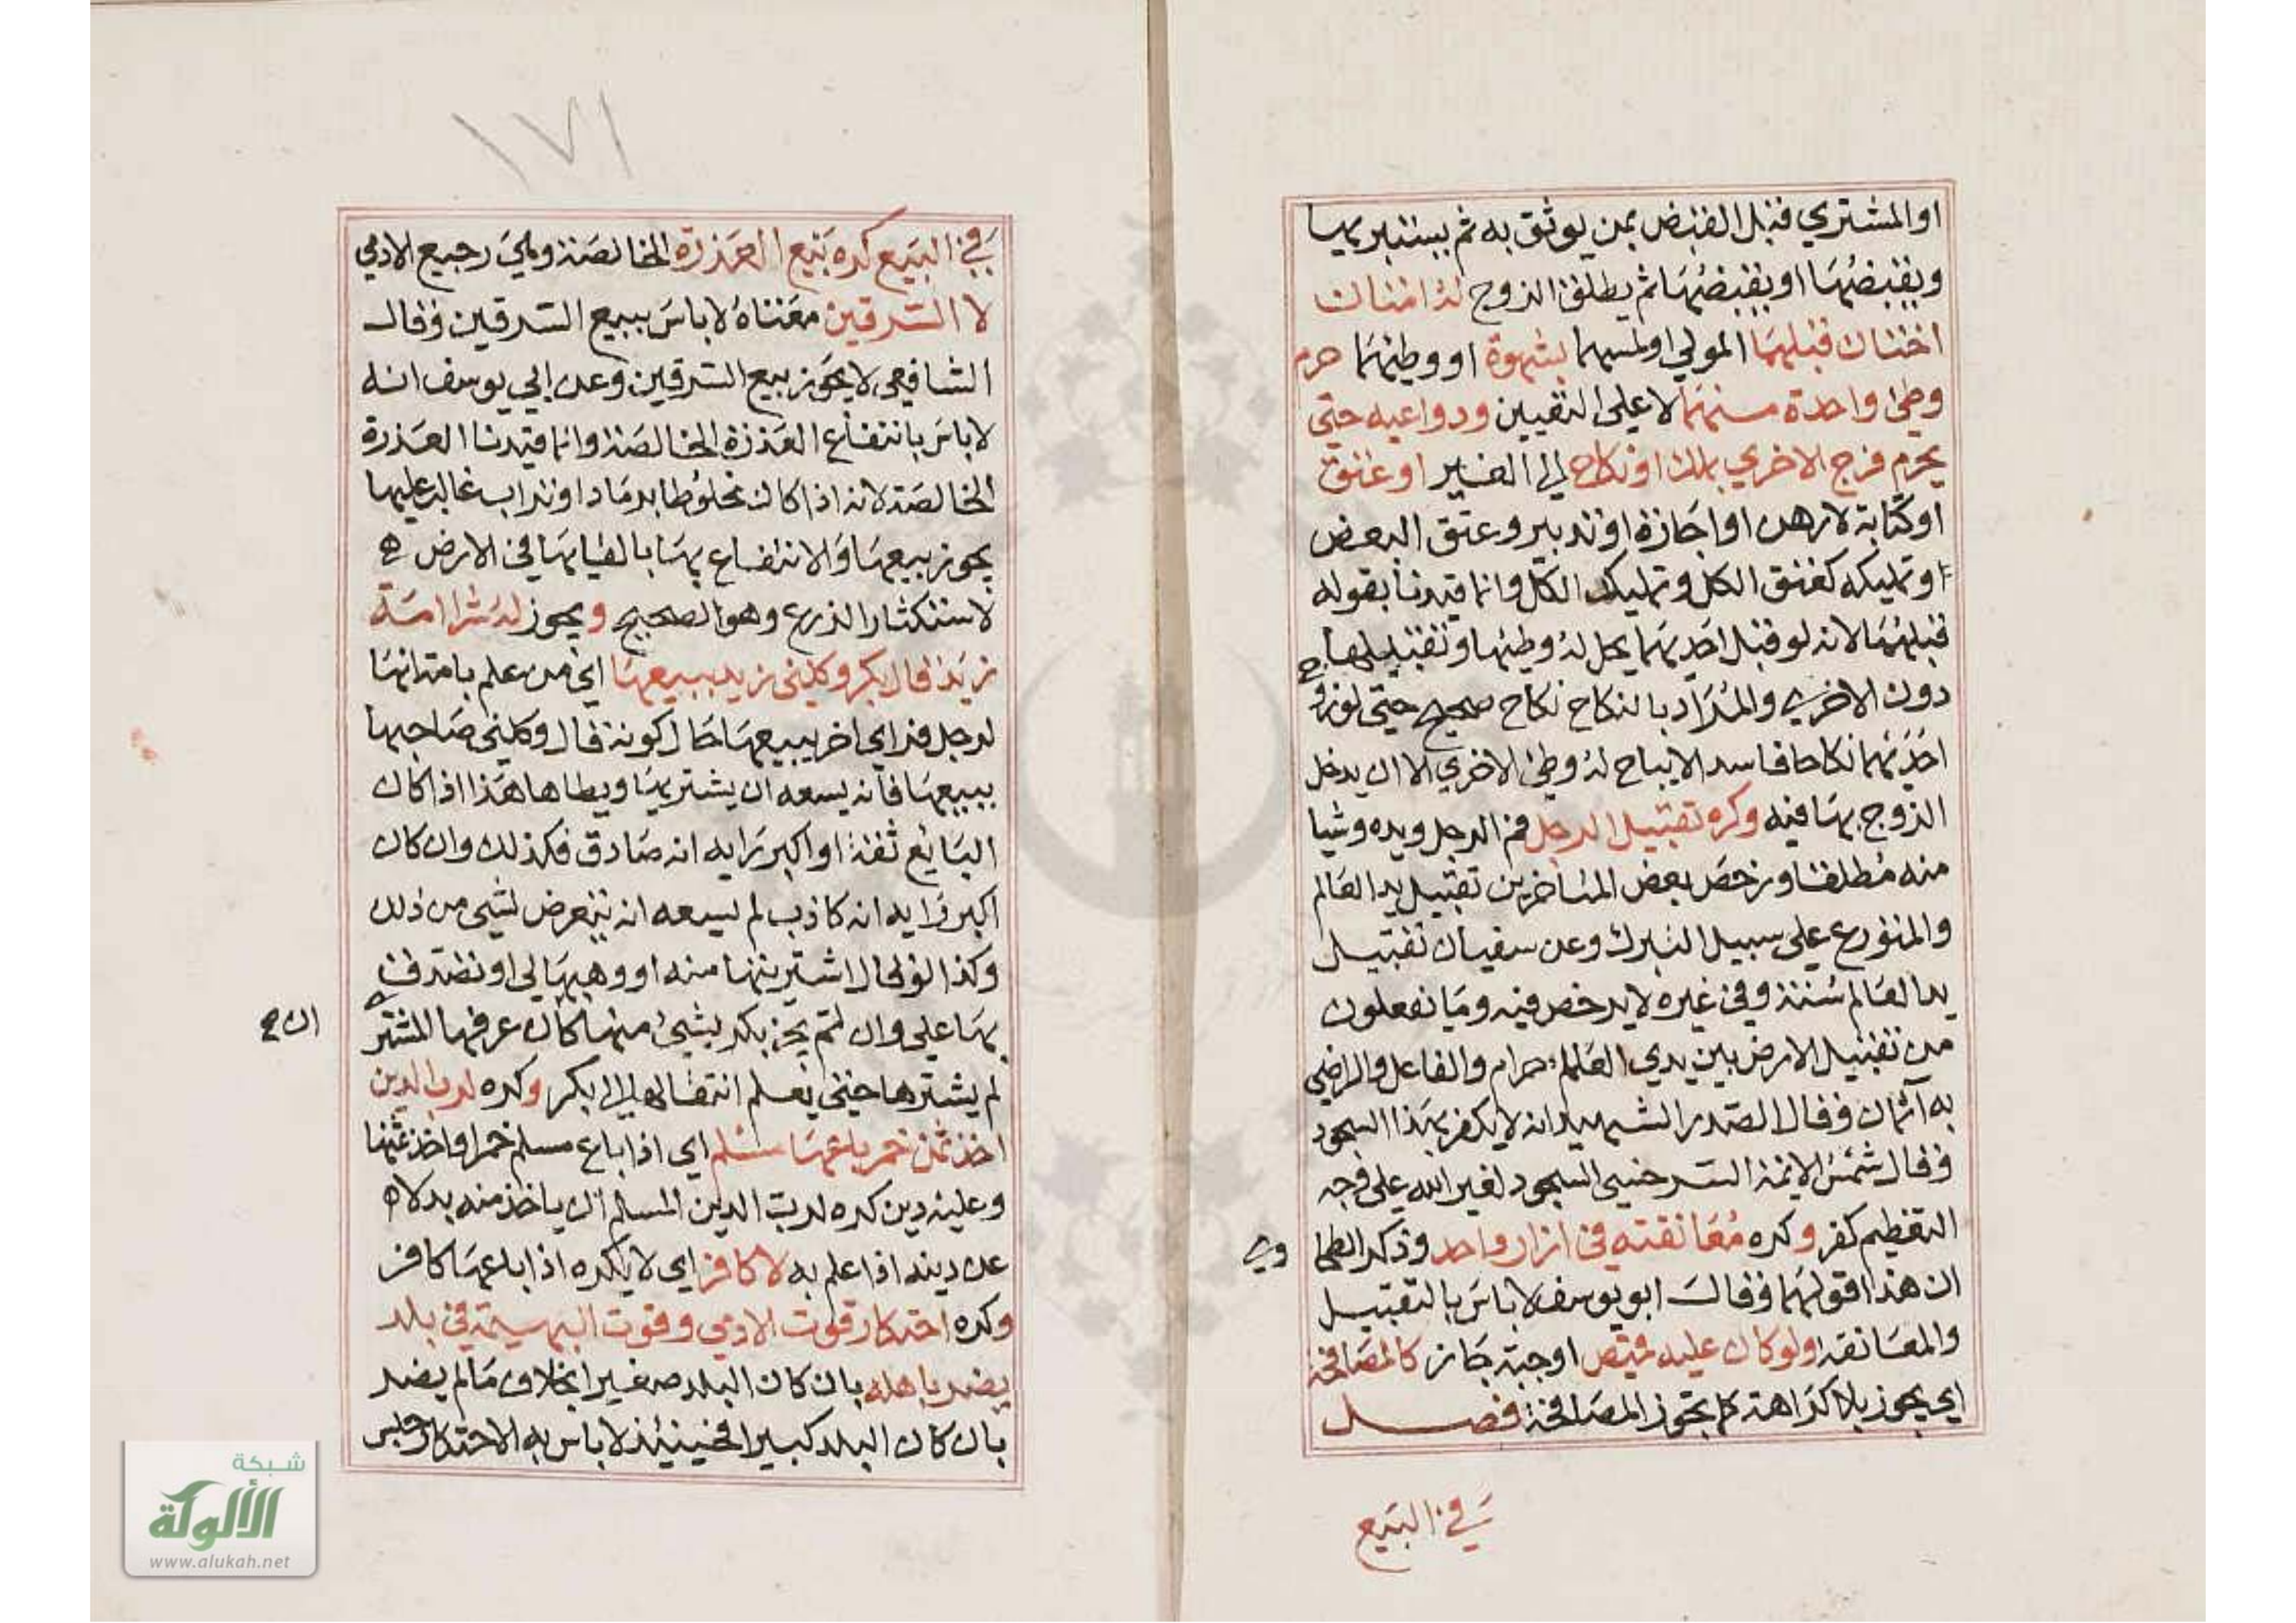 او المشتري قبل القبض بمن يوثق به ثم يستبريها
ويقبضها او يقبضها ثم يطلق الزوج له امتان
اختان قبلهما المولي او لمسهما بشهوة او وطئهما حرم
وطئ واحدة منهما لا علي التعيين ودواعيه حتي
يحرم فرج الاخري بملك او نكاح الي الغير او عتق
او كتابة لا رهن او اجازة او تدبير وعتق البعض
او تمليكه كعتق الكل وتمليك الكل وانما قيدنا بقوله
قبلهما لانه لو قبل احديهما يحل له وطئها وتقبيلها
دون الاخري والمراد بالنكاح نكاح صحيح حتي لو زوج
احديهما نكاحا فاسد الايباح له وطئ الاخري الا ان يدخل
الزوج بها فيه وكره تقبيل الرجل فم الرجل ويده وشيا
منه مطلقا ورخص بعض المتأخرين تقبيل يد العالم
والمتورع علي سبيل التبرك وعن سفيان تقبيل
يد العالم سنة وفي غيره لا يرخص فيه وما تفعلون
من تقبيل الارض بين يدي العلماء حرام والفاعل والراضي
به آثمان وقال الصدر الشهيد انه لا يكفر بهذا السجود
وقال شمس الائمة السرخسي السجود لغير الله علي وجه
التعظيم كفر وكره معانقته في ازار واحد وذكر الطحا
وي
ان هذا قولهما وقال ابو يوسف لا باس بالتقبيل
والمعانقة ولو كان عليه قميص او جبة جاز كالمصافحة
اي يجوز بلا كراهة كما يجوز المصافحة فصل
في البيع
١٧١
في البيع كره بيع العذرة الخالصة وهي رجيع الادمي
لا السرقين معناه لا باس ببيع السرقين وقال
الشافعي لا يجوز بيع السرقين وعن ابي يوسف انه
لا باس بانتفاع العذرة الخالصة وانما قيدنا العذرة
الخالصة لانه اذا كان مخلوطا برماد او تراب غالب عليها
يجوز بيعها والانتفاع بها بالقايها في الارض
لاستكثار الزرع وهو الصحيح ويجوز له شرا امة
زيد قال بكر وكلني زيد ببيعها اي من علم بامة انها
لرجل فراي اخر يبيعها حال كونه قال وكلني صاحبها
ببيعها فانه يسعه ان يشتريها ويطاها هذا اذا كان
البايع ثقة او اكبر رايه انه صادق فكذلك وان كان
اكبر رايه انه كاذب لم يسعه ان يتعرض لشي من ذلك
وكذا لو قال اشتريتها منه او وهبها لي او تصدق
بها علي وان لم يخبر بكر بشئ منها كان عرفها المشتر
ان
لم يشترها حتي يعلم انتقالها الي بكر وكره لرب الدين
اخذ ثمن خمر باعها مسلم اي اذا باع مسلم خمرا واخذ ثمنها
وعليه دين كره لرب الدين المسلم ان ياخذ منه بدلا
عن دينه اذا علم به لا كافر اي لا يكره اذا باعها كافر
وكره احتكار قوت الادمي وقوت البهيمة في بلد
يضر باهله بان كان البلد صغيرا بخلاف ما لم يضر
بان كان البلد كبيرا فحينئذ لا باس به الاحتكار حبس
شبكة
الألوكة
www.alukah.net